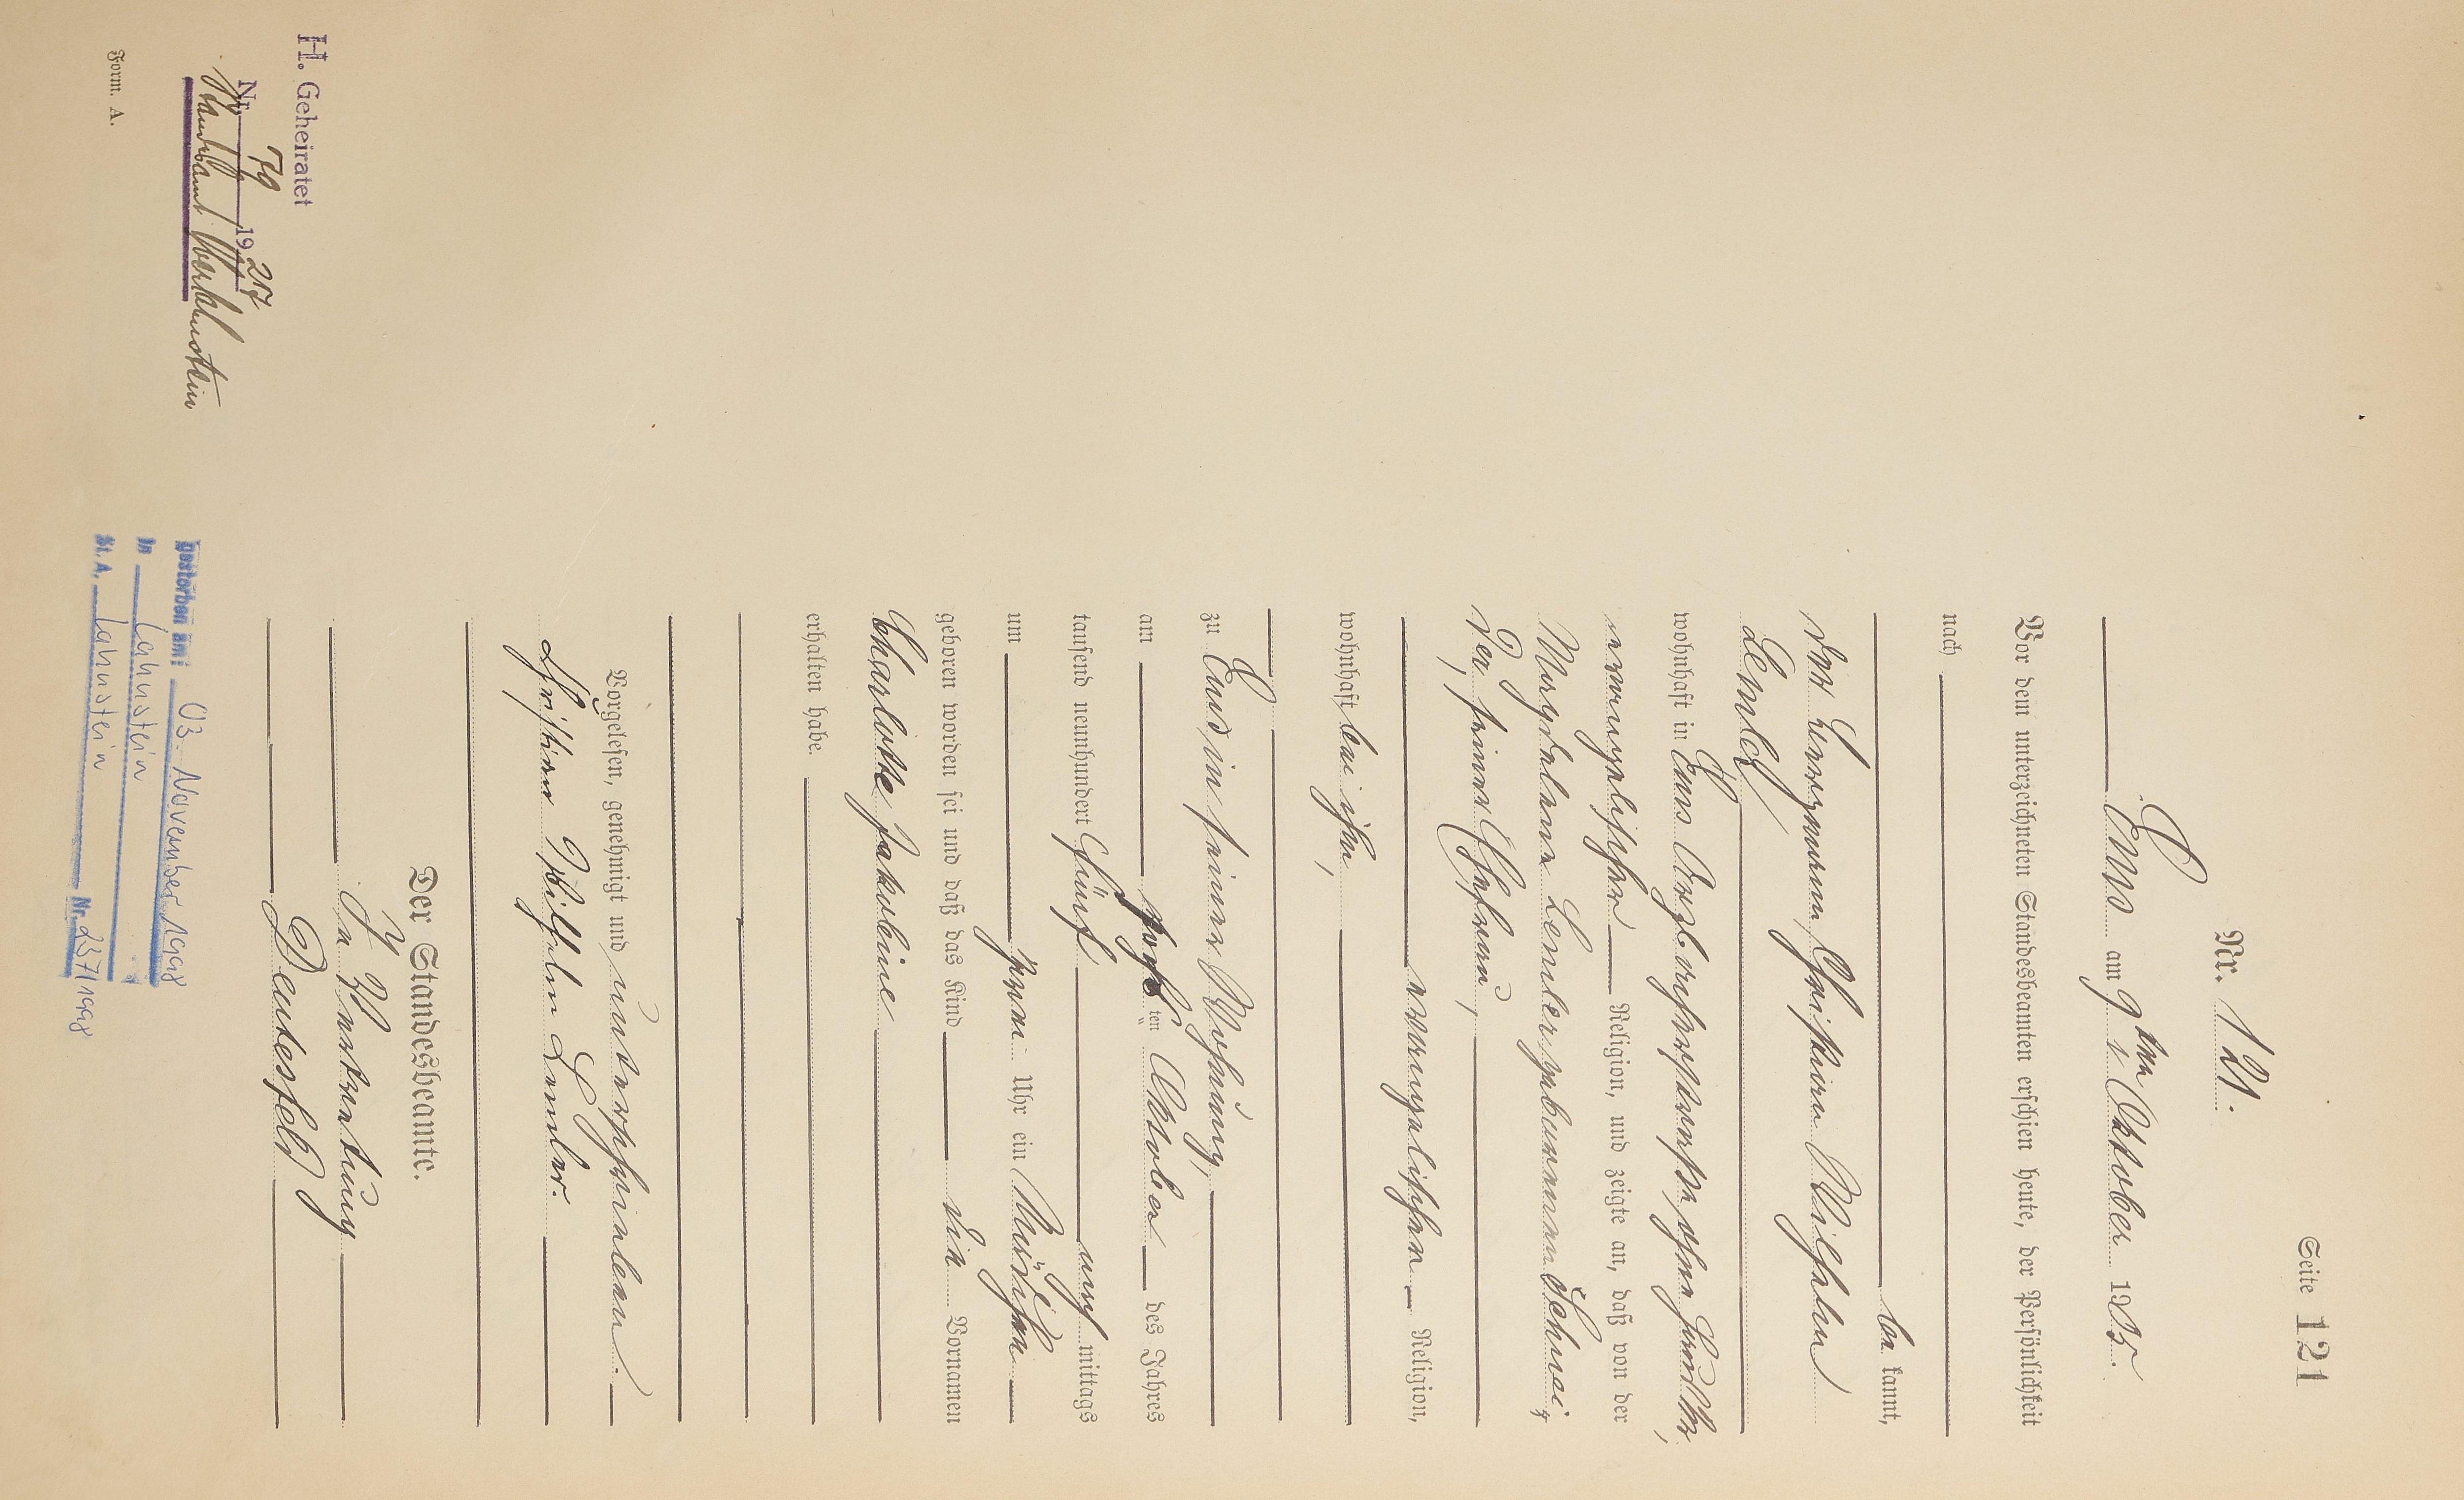 Seite 121
Nr. 121.
Ems am 9ten Oktober 1905.
Vor dem unterzeichneten Standesbeamten erschien heute, der Persönlichkeit
nach
be kannt,
der Bergmann Christian Wilhelm
Lemler
wohnhaft in Ems
evangelischer Religion, und zeigte an, daß von der
Magdalena Lemler geborenen Schnei-
der, seiner Ehefrau,
evangelischen Religion,
wohnhaft bei ihm,
zu Ems in seiner Wohnung,
am sechsten Oktober des Jahres
tausend neunhundert fünf nach mittags
um zwei Uhr ein Mädchen
geboren worden sei und daß das Kind die Vornamen
Charlotte Jakobine
erhalten habe.
Vorgelesen, genehmigt und unterschrieben.
Christian Wilhelm Lemler.
Der Standesbeamte.
In Vertretung
Deutesfeld
H. Geheiratet
Nr. 79 1927
Standesamt Oberlahnstein
Form. A.
Gestorben am: 03. November 1998
in Lahnstein
St. A. Lahnstein Nr. 237/1998